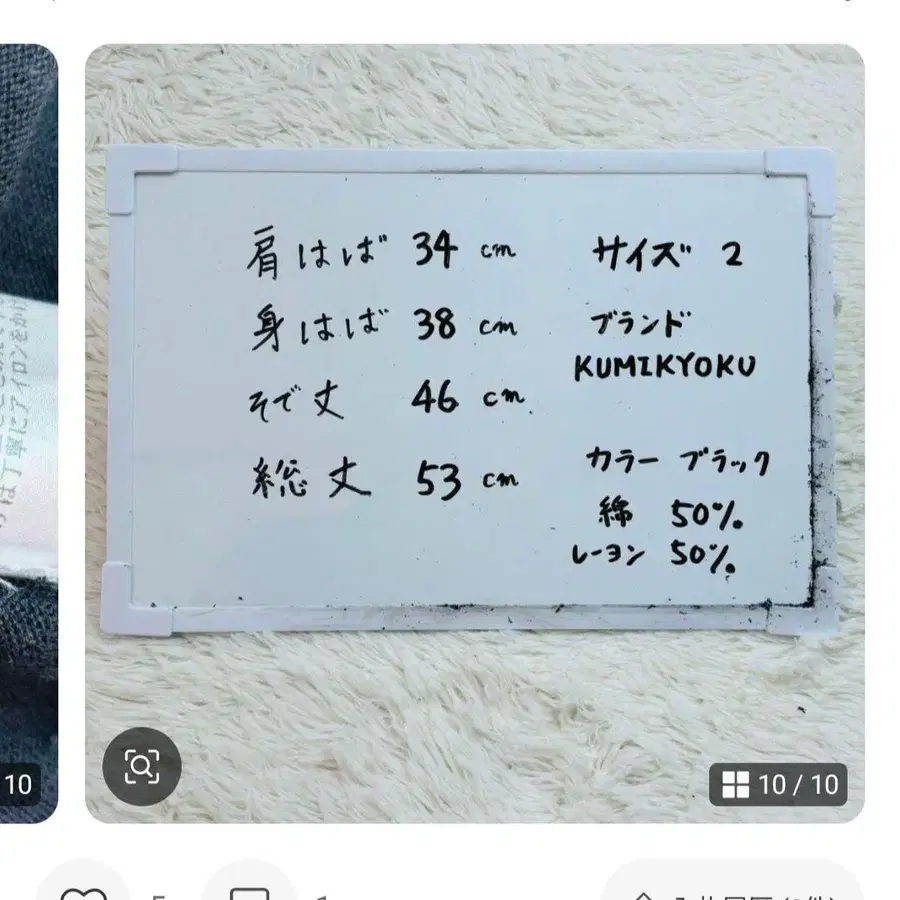 肩はば 34 cm
身はば 38 cm
そで丈 46 cm
総丈 53 cm
サイズ 2
ブランド
KUMIKYOKU
カラー ブラック
綿 50%
レーヨン 50%
10
10 / 10